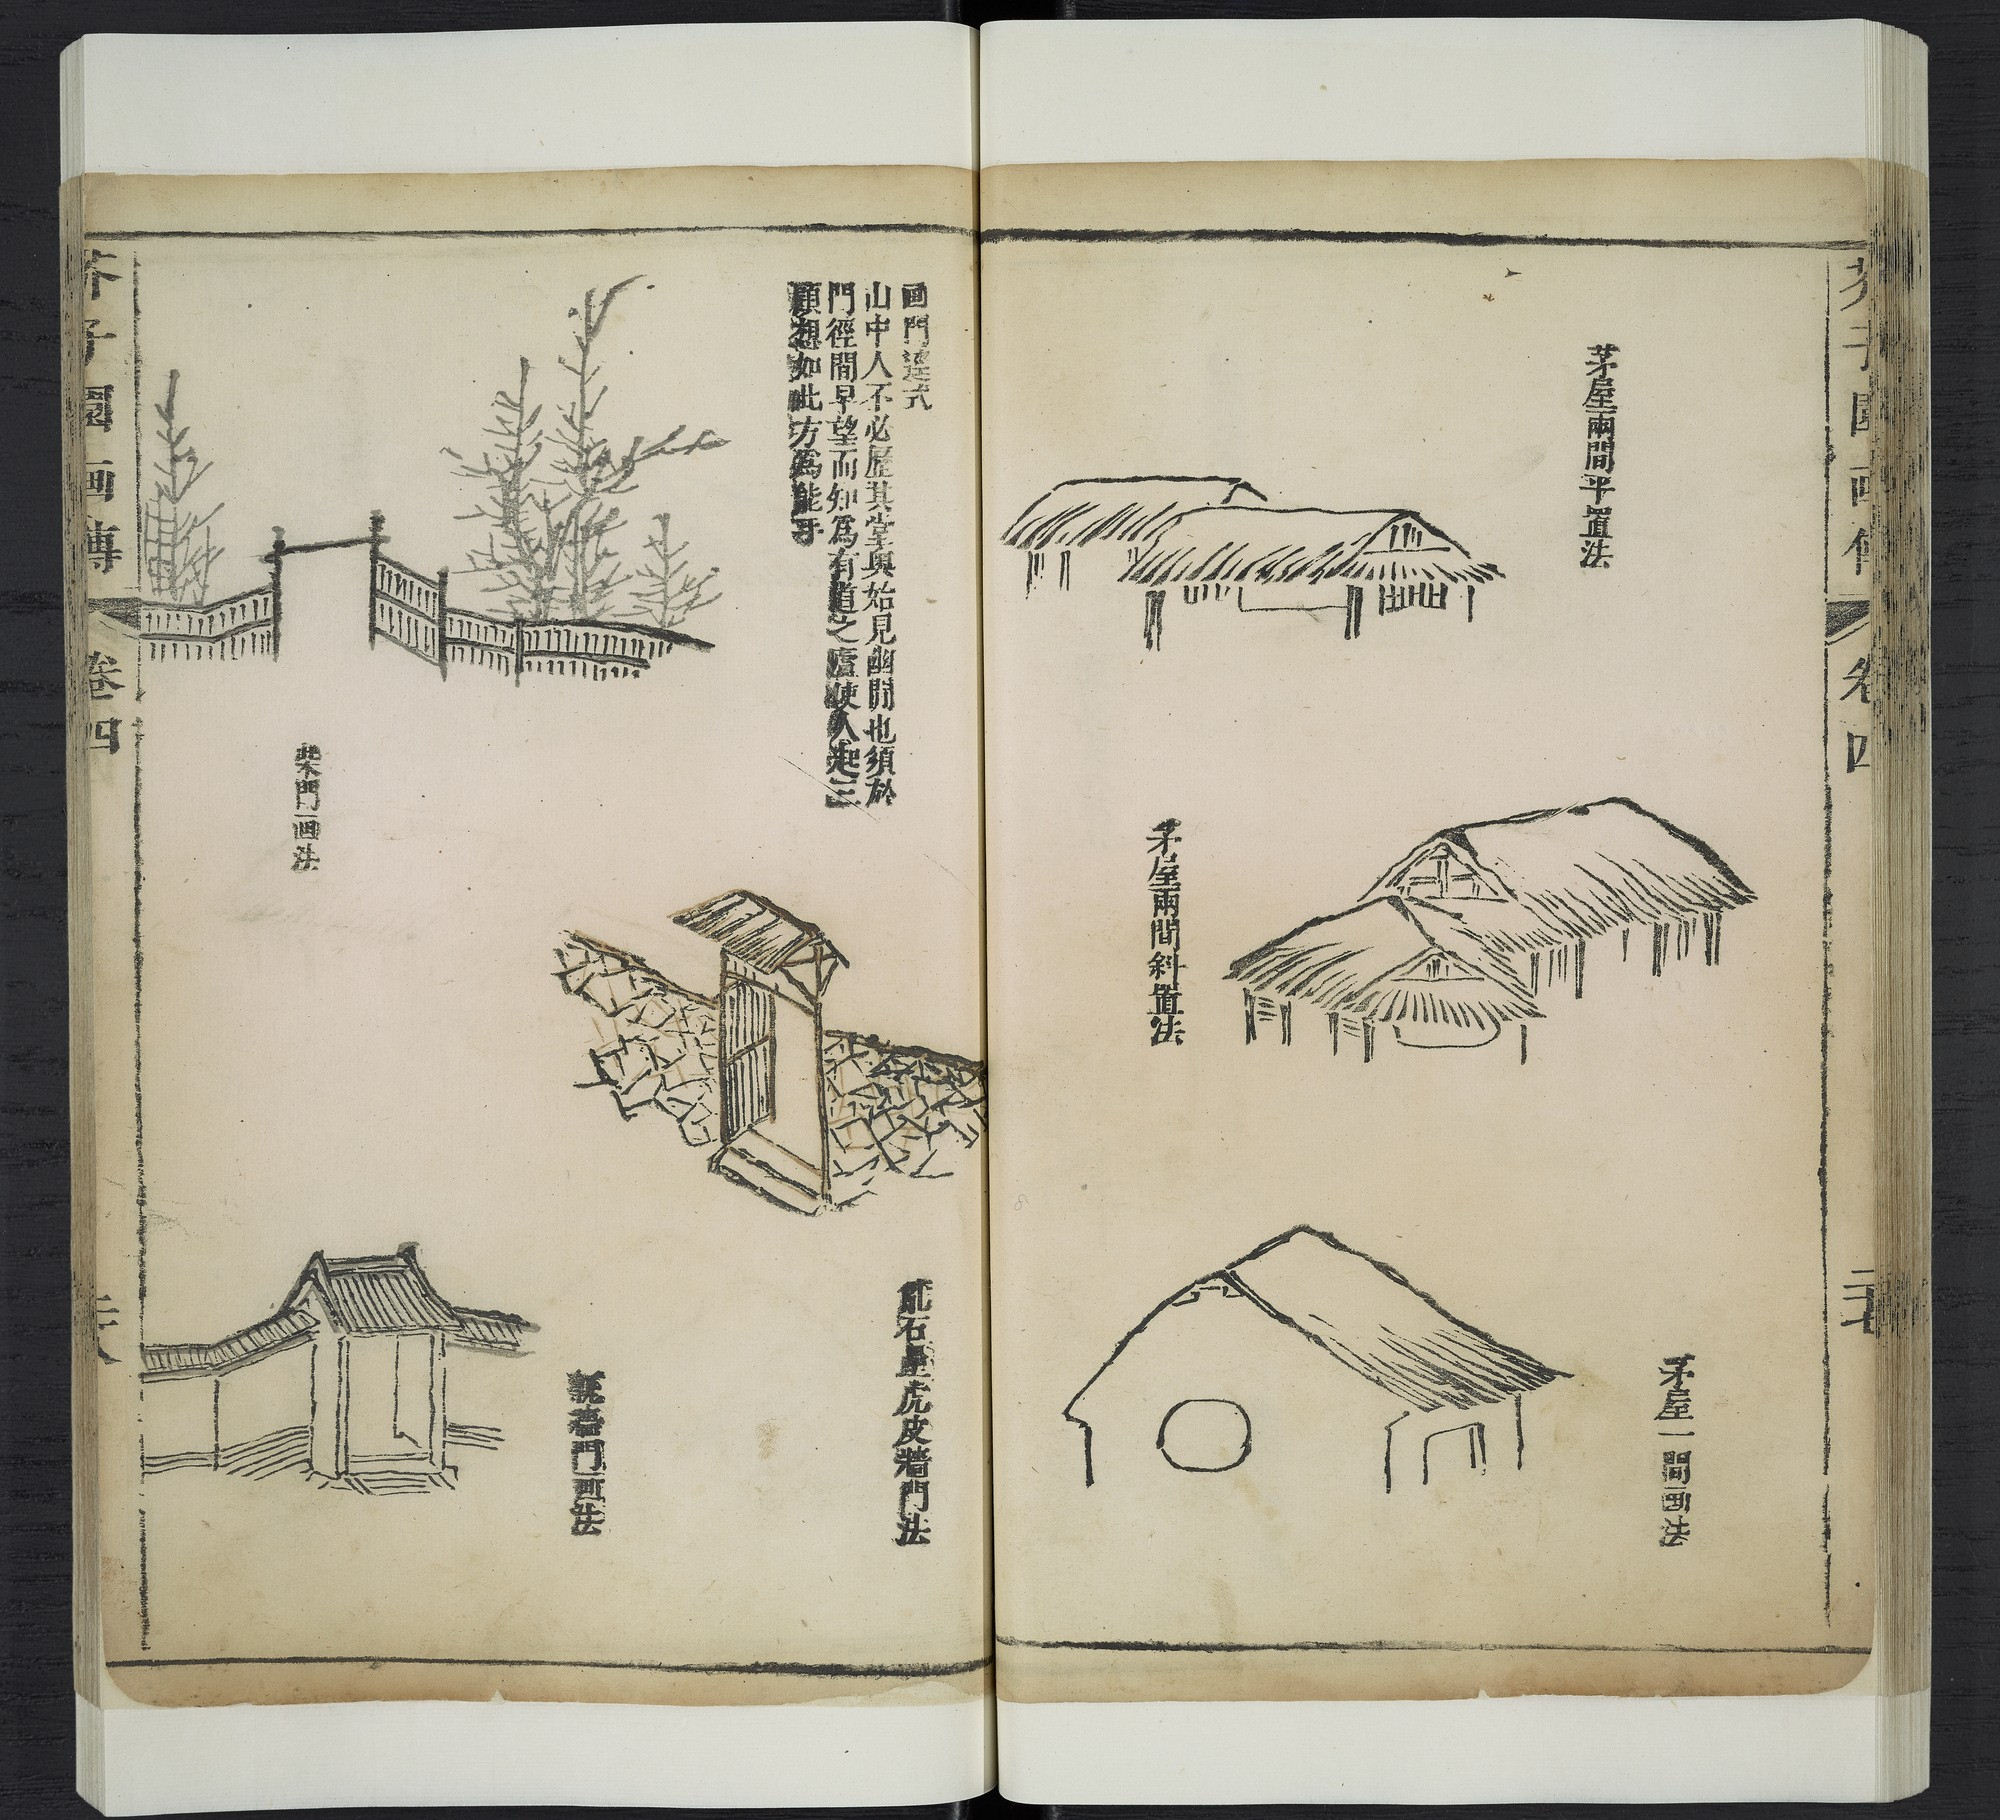 茅屋兩間平置法
茅屋兩間斜置法
茅屋一間画法
画門逕式
山中人不必歷其堂奧始見幽閒也須於
門徑間早望而知爲有道之廬使人起三
顧想如此方爲能手
亂石壘虎皮牆門法
柴門画法
墻門画法
芥子園画傳
卷四
芥子園画傳
卷四